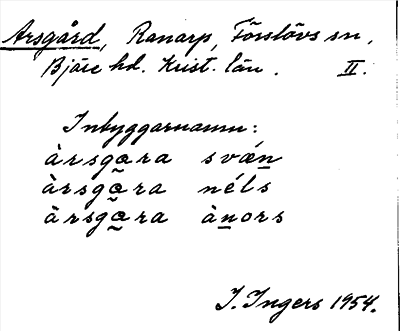 Arsgård, Ranarp, Förslövs sn,
Bjäre hd. Krist. län. II.
Inbyggarnamn:
àrsgara svæn
àrsgãra néls
àrsgãra ànors
I. Ingers 1954.